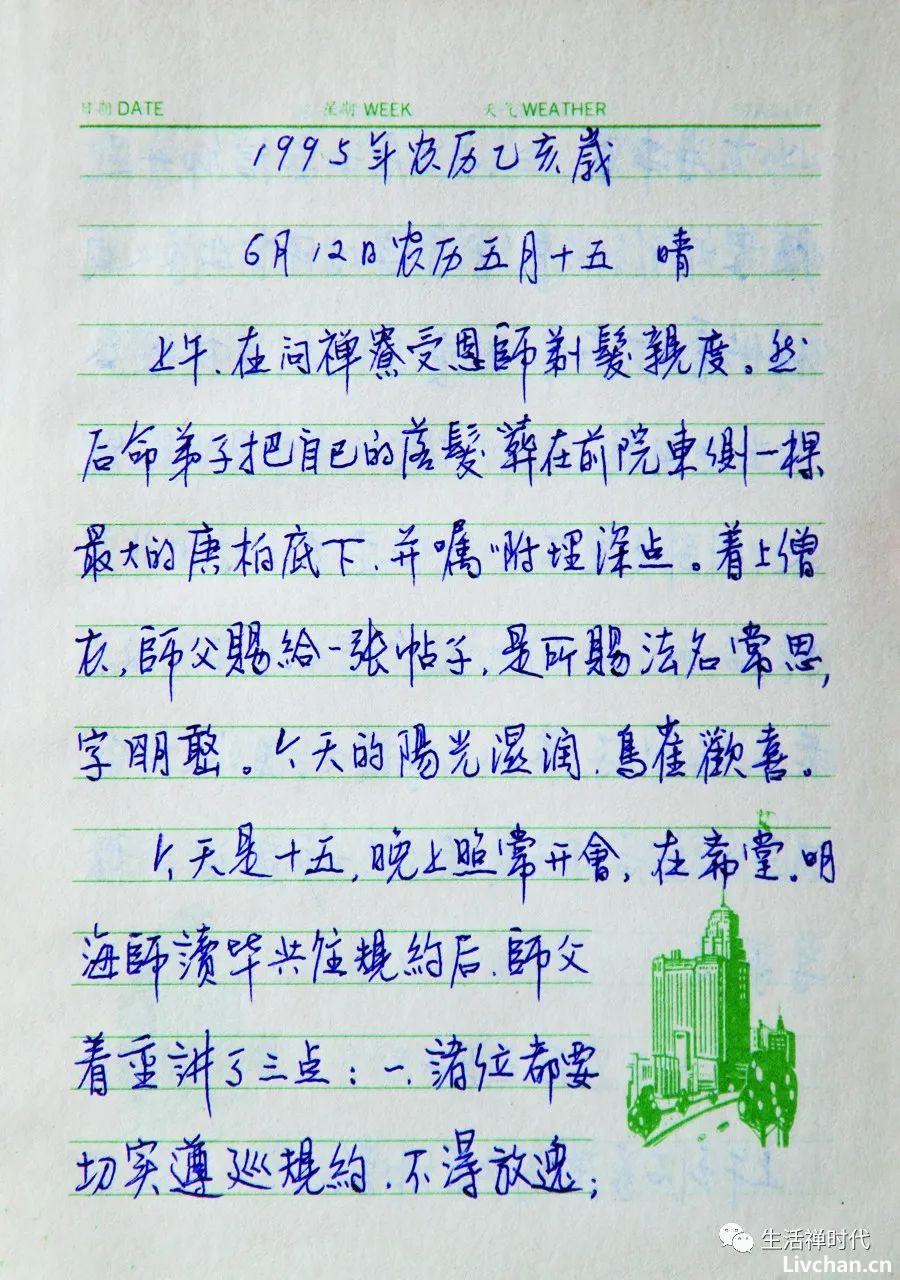 日期 DATE 星期 WEEK 天气 WEATHER
1995年农历乙亥歲
6月12日农历五月十五 晴
上午、在问禅寮受恩師剃髮親度。然
后命弟子把自己的落髮葬在前院東侧一棵
最大的唐柏底下、并嘱咐埋深点。着上僧
衣,師父賜給一张帖子,是所賜法名常思,
字明憨。今天的陽光温润、鳥雀歡喜。
今天是十五,晚上照常开會,在斋堂。明
海師讀毕共住規約后、師父
着重讲了三点：一、諸位都要
切实遵巡規約、不得放逸；
生活禅时代
Livchan.cn